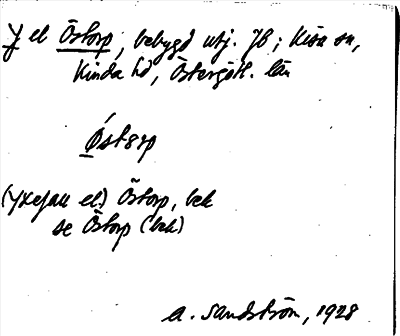 Y el Östorp, bebygd utj. JB; Kisa sn,
Kinda hd, Östergötl. län
Östorp
(Yxefall el) Östorp, bek
se Östorp (bek)
A. Sandström, 1928